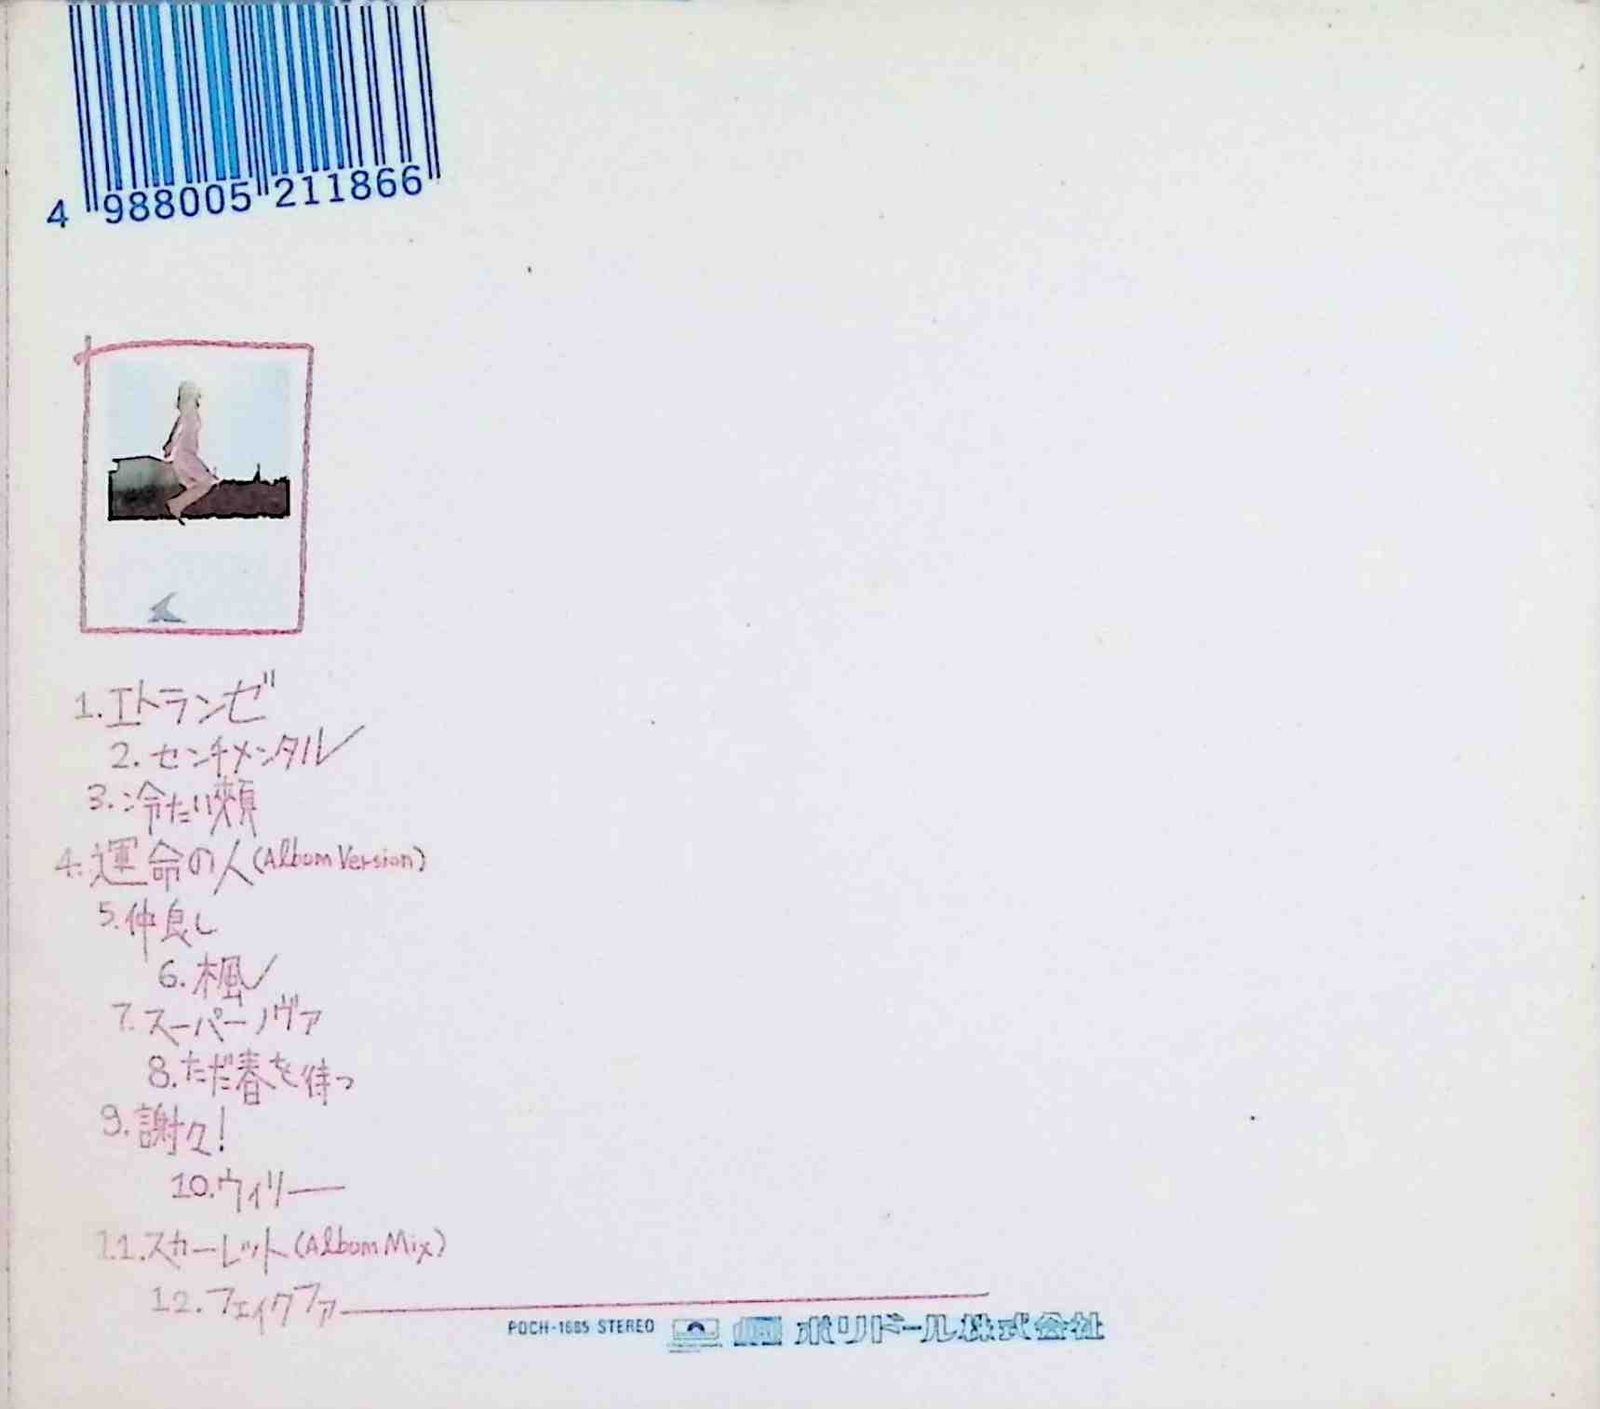 4 988005 211866
1.エトランゼ
2.センチメンタル
3.冷たい頬
4.運命の人(Album Version)
5.仲良し
6.楓
7.スーパーノヴァ
8.ただ春を待つ
9.謝々!
10.ウィリー
11.スカーレット(Album Mix)
12.フェイクファー
POCH-1685 STEREO ポリドール株式会社